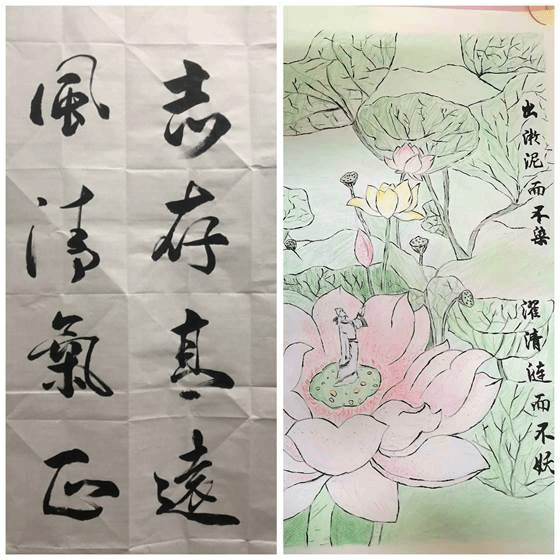 志存高遠
風清氣正
出淤泥而不染
濯清涟而不妖